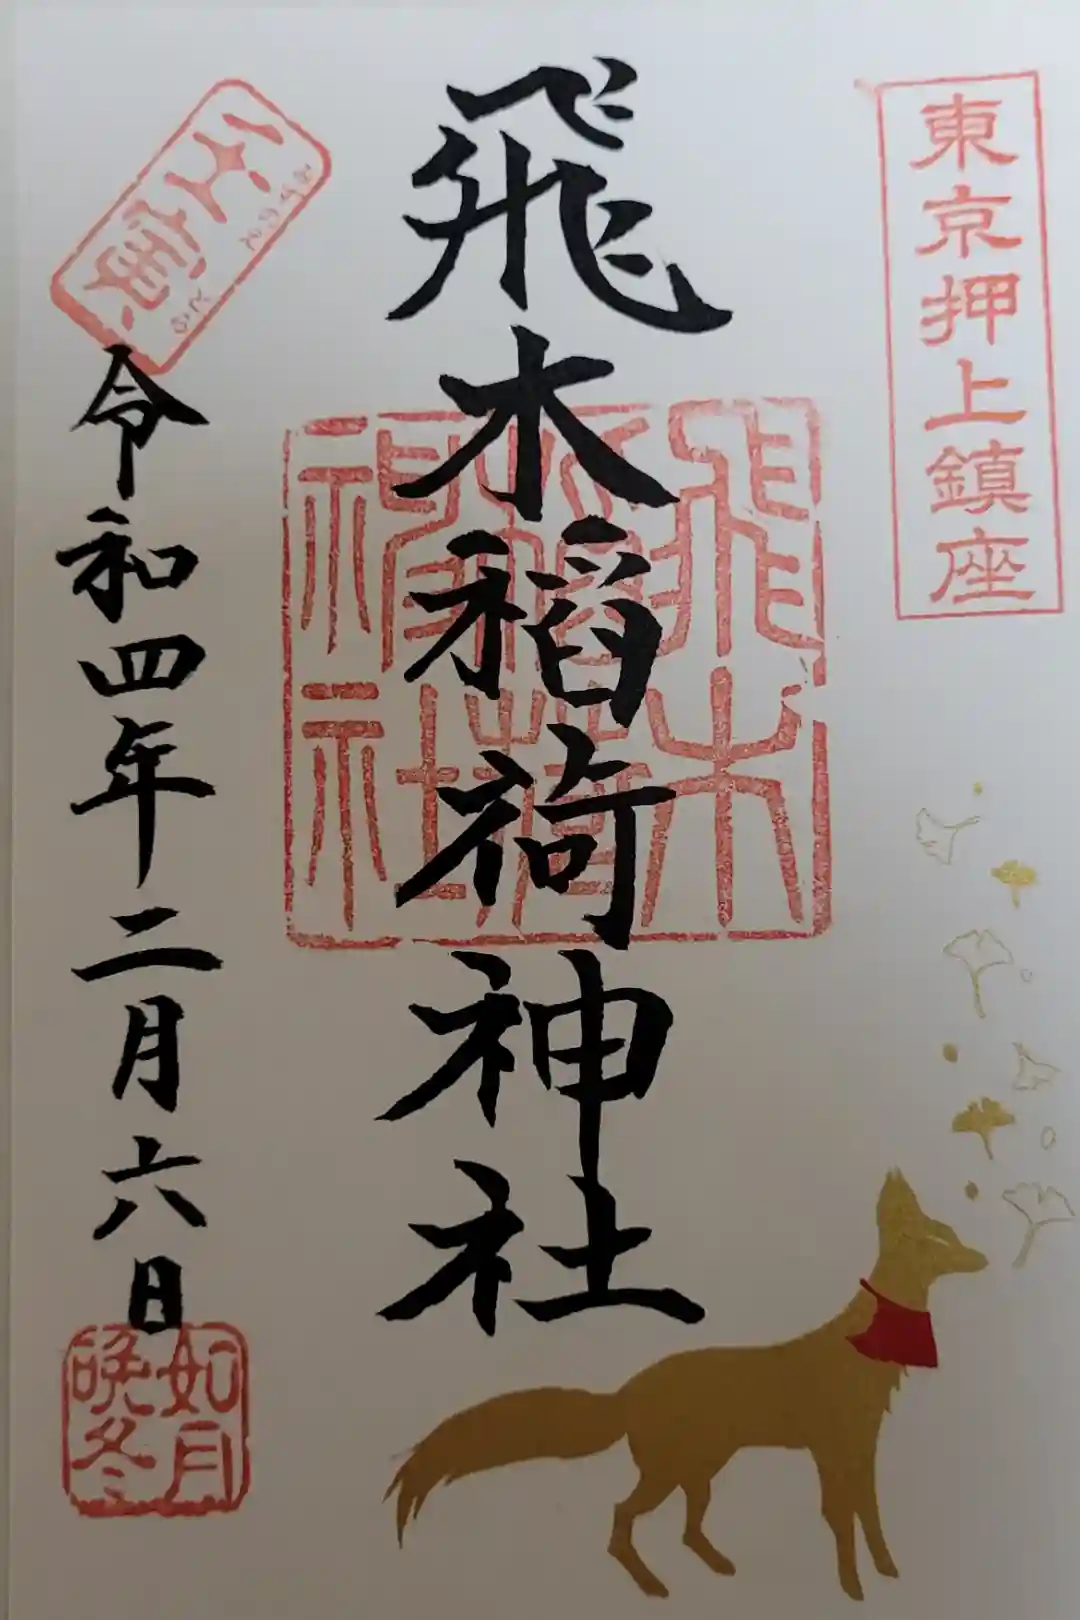 東京押上鎮座
飛木稲荷神社
飛木
稲荷
神社
壬寅
みずのえ とら
令和四年二月六日
如月
晩冬